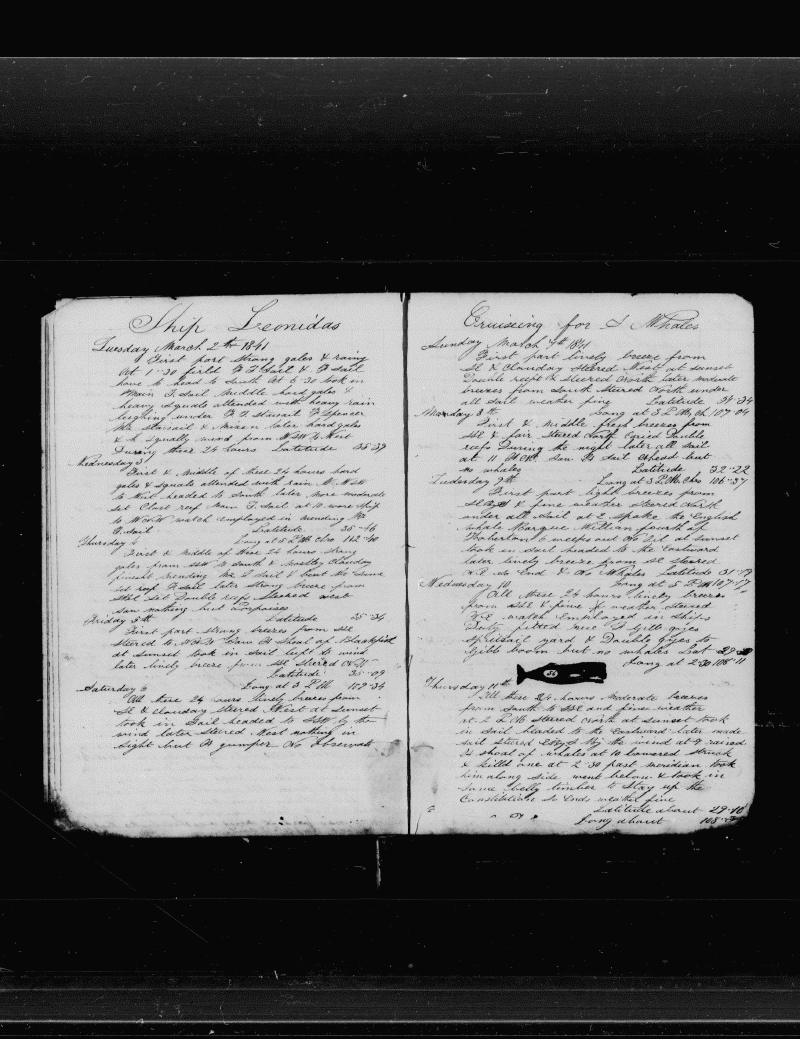 Ship Leonidas
Tuesday March 2th 1841
First part strong gales & rainy
At 1-30 firld F T Sail & F Sail
hove to head to South At 6 30 took in
Main T Sail Middle hard gales &
heavy squals attended with heavy rain
laying under
staysail & Mizen later hard gales
& h squally wind from WSW to West
During these 24 hours Latitude 35-39
Wednesday 3
First & Middle of these 24 hours hard
gales & squals attended with rain
to West headed to South later more moderate
set Close reef Main T Sail at 10 wore ship
to watch employed in mending
T Sail Latitude 35-46
Thursday 4 Long at 5 P M chro 112-40
First & Middle of these 24 hours strong
gales from SSW to South & mostly Clouday
finisht mending T Sail & bent the same
set reef F Sail later strong breeze from
Set Double reefs Steared west
saw nothing but Porpoises
Friday 5th Latitude 35-34
First part strong breezes from
steered to Saw A Shoal of Blackfish
at Sunset took in Sail lufft to wind
later lively breeze from steered
Latitude 35-09
Saturday 6 Long at 3 P M 109-34
All these 24 ours lively brezes from
& clouday steered West at sunset
took in Sail headed to SSW by the
wind later steered West nothing in
Sight but A gumper No Observati
Cruiseing for S Whales
Sunday March 7th 1841
First part lively breeze from
& Clouday Steered West at sunset
Double reeft & Steered North later moderate
brezes from South Steered North under
all Sail weather fine Latitude 34-34
Monday 8th Long at 3 P M Ch 107-04
First & Middle fresh breezes from
& fair Steered North Caried Double
reefs During the night later all Sail
at 11 saw A Sail Ahead but
no whales Latitude 32-22
Tuesday 9th Long at 3 P M Chro 106-37
First part light breezes from
& fine weather Steered North
under all Sail at 2 Spoke the English
whale Barque William fourth of
6 weeks out No Oil at sunset
took in Sail headed to the Eastward
later lively breeze from steared
So End & No Whales Latitude 31-19
Wednesday 10 Long at 5 P M 107-17
All these 24 hours lively brezes
from & fine weather steered
watch Employed in Ships
Duty fitted new
spritsail yard & Double Guyes to
Gibb boom but no whales Lat
Long at 2-30 108-11
56
Thursday 11th
All these 24 hours moderate brezes
from South to and fine weather
at 2 P M Steered North at sunset took
in Sail headed to the Eastward later made
Sail Steered by the wind at 9 raised
A shoal of whales at 10 lowered struck
& killd one at 2 30 past meridian took
him along Side went below & took in
Some belly timber to Stay up the
Constitutions So Ends weather fine
Latitude about 29-10
Long about